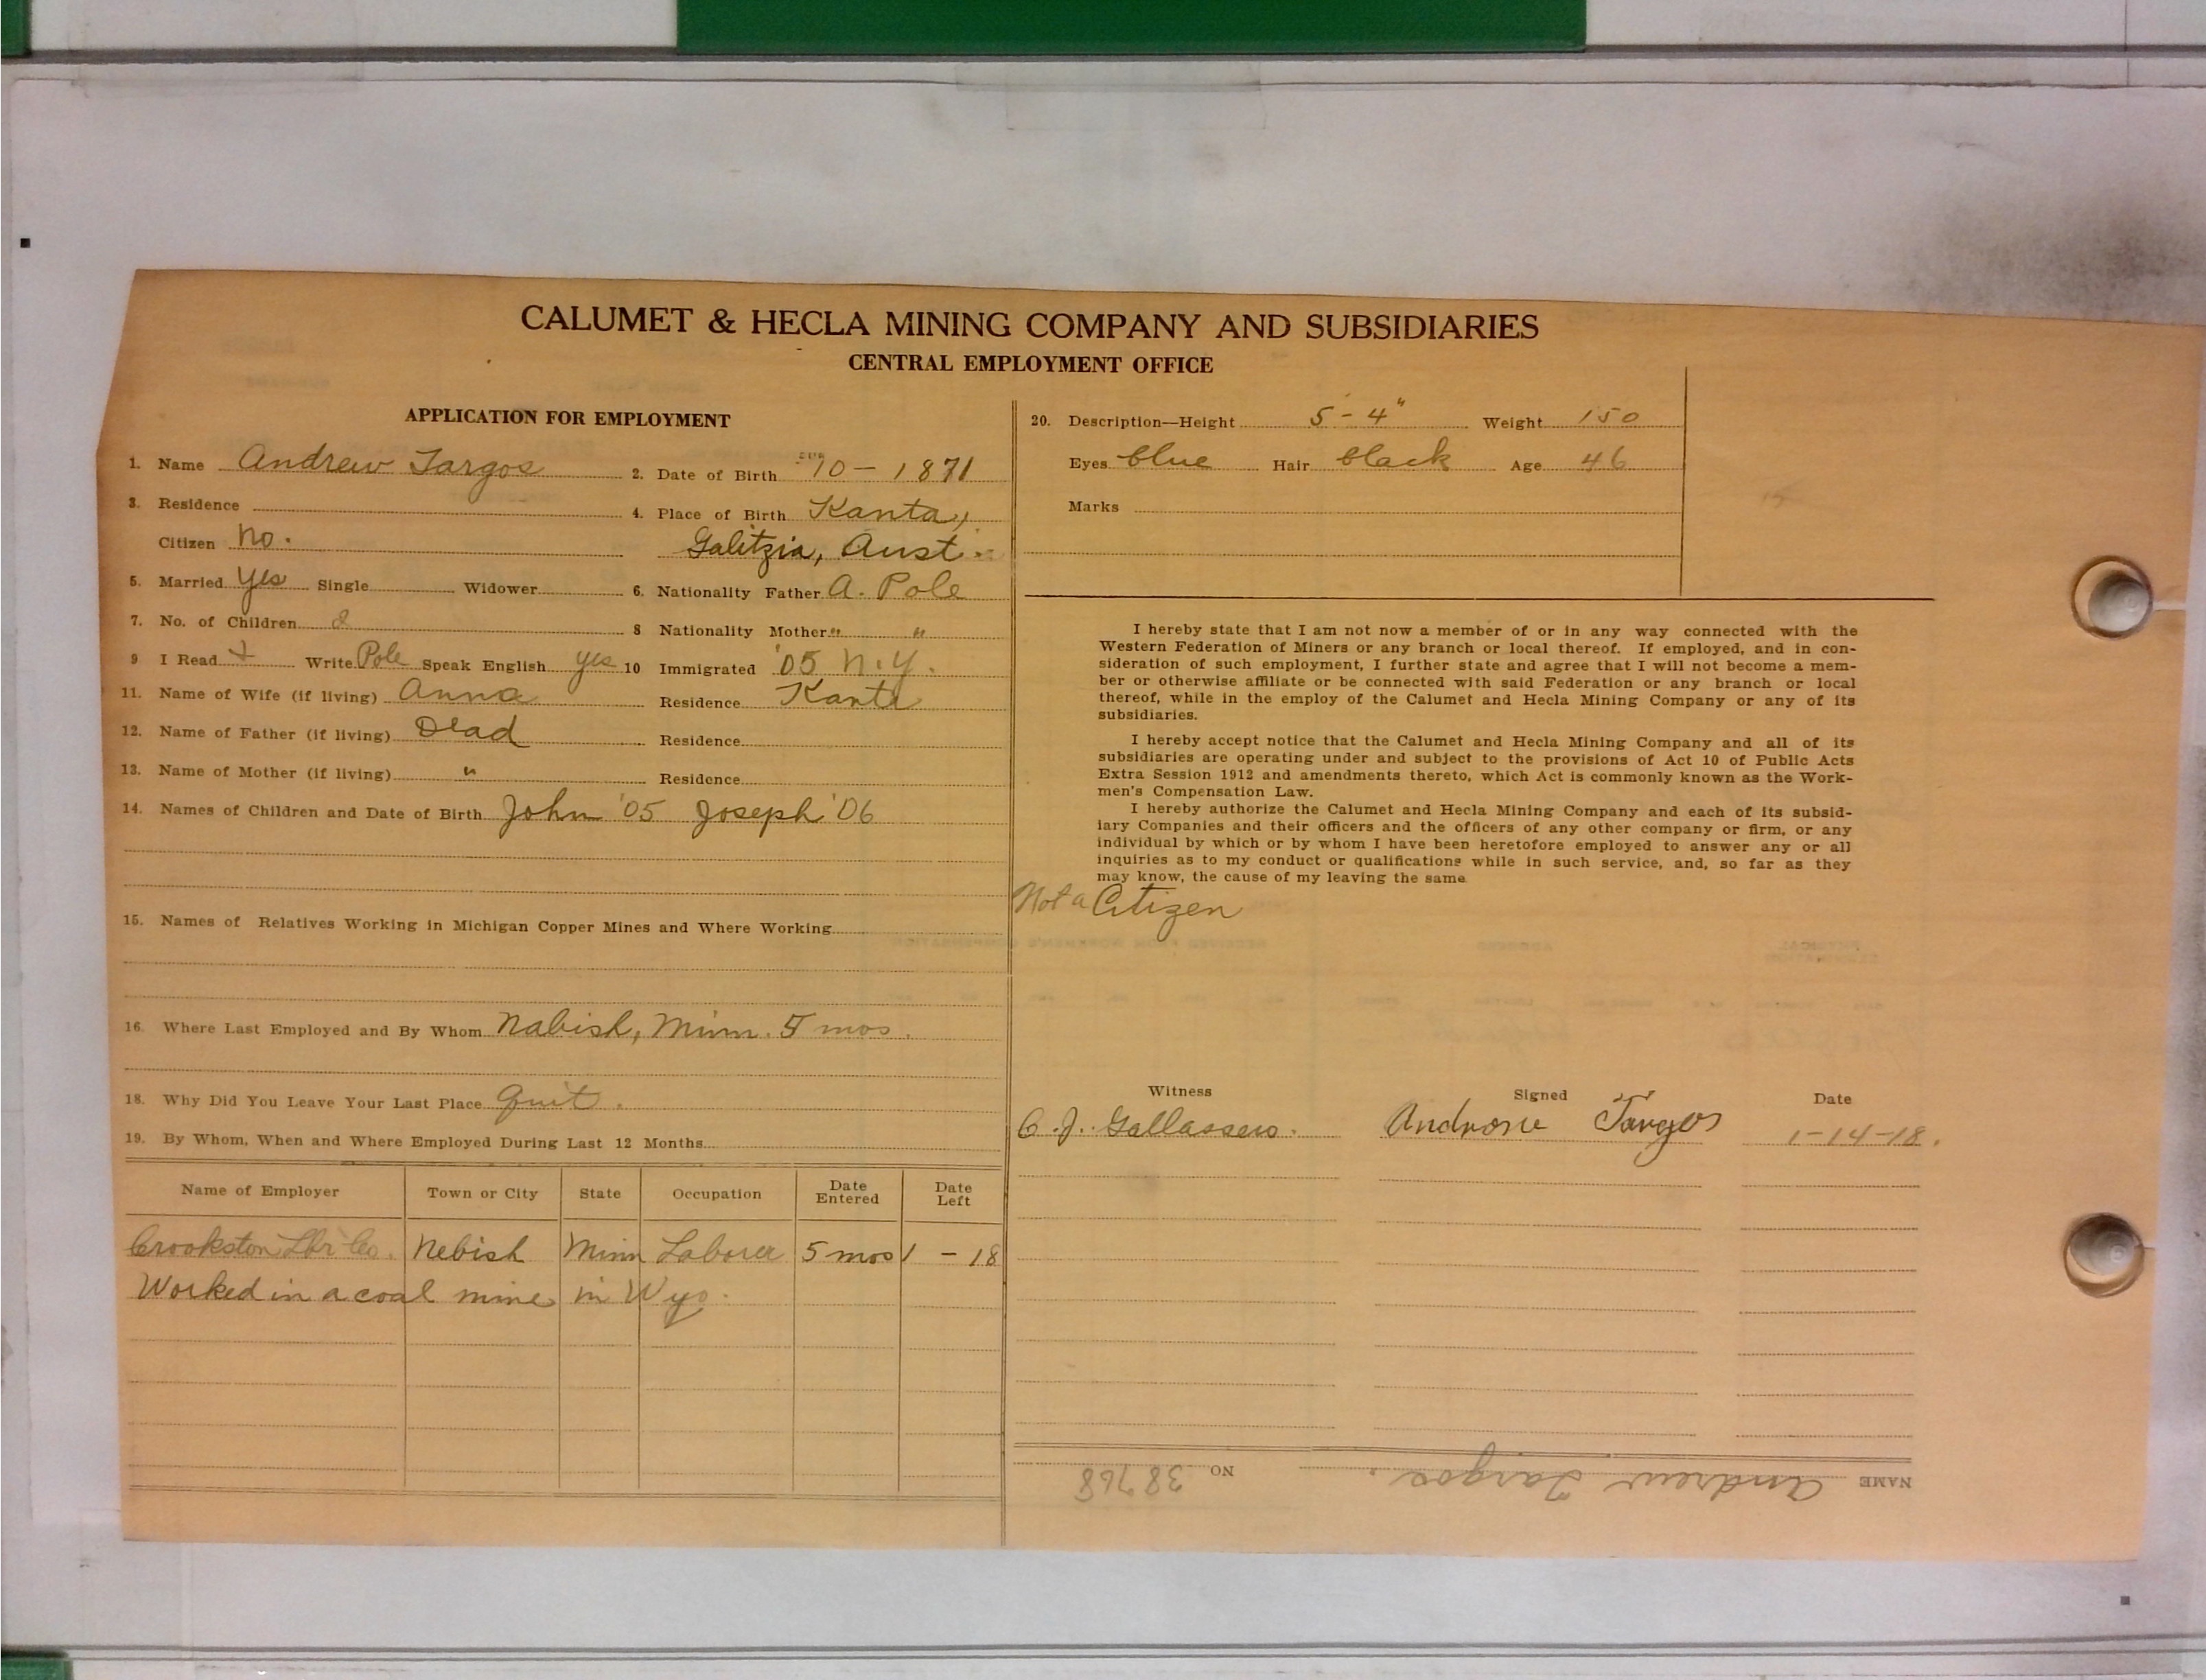 CALUMET & HECLA MINING COMPANY AND SUBSIDIARIES
CENTRAL EMPLOYMENT OFFICE
APPLICATION FOR EMPLOYMENT
1. Name Andrew Targos 2. Date of Birth 10 - 1871
3. Residence 4. Place of Birth Kanta,
Citizen no. Galitzia, Aust.
5. Married yes Single Widower 6. Nationality Father A. Pole
7. No. of Children 2 8 Nationality Mother " "
9 I Read & Write Pole Speak English yes 10 Immigrated '05 N.Y.
11. Name of Wife (if living) Anna Residence Kanta
12. Name of Father (if living) Dead Residence
13. Name of Mother (if living) " Residence
14. Names of Children and Date of Birth John '05 Joseph '06
15. Names of Relatives Working in Michigan Copper Mines and Where Working
16. Where Last Employed and By Whom Nabish, Minn. 5 mos.
18. Why Did You Leave Your Last Place Quit.
19. By Whom, When and Where Employed During Last 12 Months
Name of Employer Town or City State Occupation Date Entered Date Left
Crookston Lbr Co. Nebish Minn Laborer 5 mos 1 - 18
Worked in a coal mine in Wyo.
20. Description—Height 5 - 4" Weight 150
Eyes blue Hair black Age 46
Marks
I hereby state that I am not now a member of or in any way connected with the
Western Federation of Miners or any branch or local thereof. If employed, and in con-
sideration of such employment, I further state and agree that I will not become a mem-
ber or otherwise affiliate or be connected with said Federation or any branch or local
thereof, while in the employ of the Calumet and Hecla Mining Company or any of its
subsidiaries.
I hereby accept notice that the Calumet and Hecla Mining Company and all of its
subsidiaries are operating under and subject to the provisions of Act 10 of Public Acts
Extra Session 1912 and amendments thereto, which Act is commonly known as the Work-
men's Compensation Law.
I hereby authorize the Calumet and Hecla Mining Company and each of its subsid-
iary Companies and their officers and the officers of any other company or firm, or any
individual by which or by whom I have been heretofore employed to answer any or all
inquiries as to my conduct or qualifications while in such service, and, so far as they
may know, the cause of my leaving the same.
Not a Citizen
Witness Signed Date
C. J. Targos 1-14-18.
NAME Andrew Targos. NO 38768